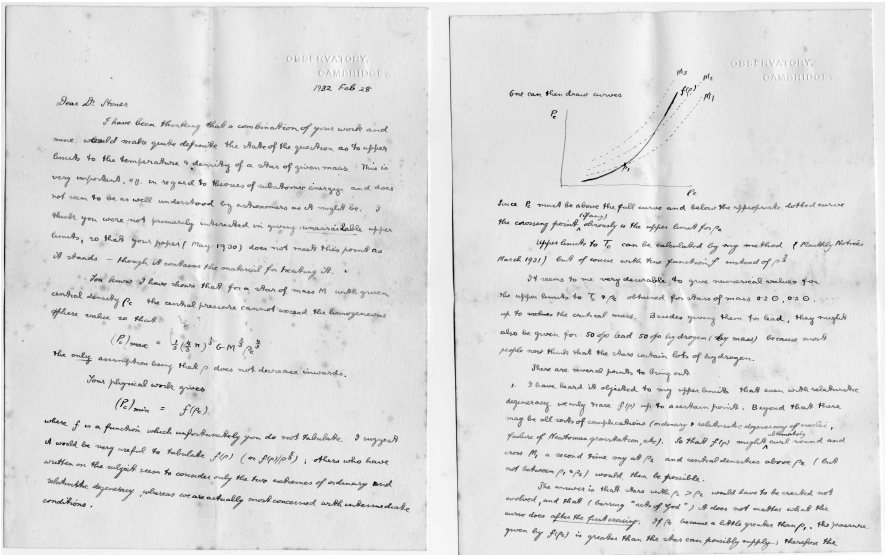 OBSERVATORY,
CAMBRIDGE.
1932 Feb 28
Dear Dr Stoner
I have been thinking that a combination of your work and
mine would make quite definite the state of the question as to upper
limits to the temperature & density of a star of given mass. This is
very important, e.g. in regard to theories of subatomic energy and does
not seem to be as well understood by astronomers as it might be. I
think you were not primarily interested in giving unassailable upper
limits, so that your paper (May 1930) does not meet this point as
it stands — though it contains the material for treating it.
You know I have shown that for a star of mass M with given
central density ρc the central pressure cannot exceed the homogeneous
sphere value so that
(Pc)max = (4/3 π)^⅓ G M^⅔ ρc^4/3
the only assumption being that ρ does not decrease inwards.
Your physical work gives
(Pc)min = f(ρc)
where f is a function which unfortunately you do not tabulate. I suggest
it would be very useful to tabulate f(ρ) (or f(ρ)/ρ^4/3); others who have
written on the subject seem to consider only the two extremes of ordinary and
relativistic degeneracy, whereas we are actually most concerned with intermediate
conditions.
OBSERVATORY,
CAMBRIDGE.
One can then draw curves
M3 M2
f(ρ) M1
Pc
ρc
Since Pc must be above the full curve and below the appropriate dotted curve
the crossing point (if any) obviously is the upper limit for ρc
Upper limits to Tc can be calculated by my method (Monthly Notices
March 1931) but of course with true function f instead of
It seems to me very desirable to give numerical values for
the upper limits to Tc & ρc obtained for stars of mass 0.2 ⊙, 0.3 ⊙, ....
up to values the critical mass. Besides giving them for lead, they might
also be given for 50% lead 50% hydrogen (by mass) because most
people now think that the stars contain lots of hydrogen.
There are several points to bring out
1. I have heard it objected to my upper limits that even with relativistic
degeneracy we only trace f(ρ) up to a certain point. Beyond that there
may be all sorts of complications (ordinary & relativistic degeneracy of nuclei,
failure of Newtonian gravitation, etc). So that f(ρ) might ultimately curl round and
cross M1 a second time say at ρ2 and central densities above ρ2 (but
not between ρ1 & ρ2) would then be possible.
The answer is that stars with ρc > ρ2 would have to be created not
evolved, and that (barring "acts of God") it does not matter what the
curve does after the first crossing. If ρc became a little greater than ρ1, the pressure
given by f(ρc) is greater than the star can possibly supply; therefore the